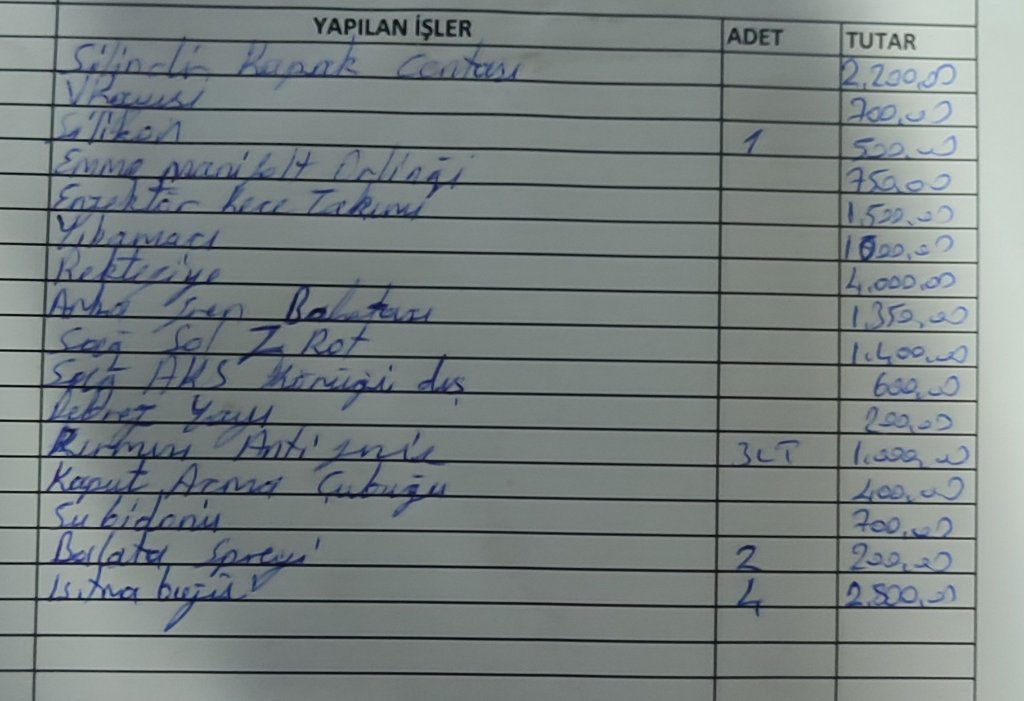 YAPILAN İŞLER ADET TUTAR
Silindir Kapak Contası 2,200,00
V Kayışı 700,00
Silikon 1 500,00
Emme manifolt Orlinği 750,00
Enjektör Keçe Takımı 1,500,00
Yıkamacı 1000,00
Rektefiye 4,000,00
Arka Fren Balatası 1,350,00
Sağ Sol Z Rot 1,400,00
Sağ AKS Körüğü dış 600,00
Yayı 200,00
Kırmızı Antifiriz 3LT 1,000,00
Kaput Açma Çubuğu 400,00
Su bidonu 700,00
Balata Spreyi 2 200,00
Isıtma bujisi 4 2,800,00